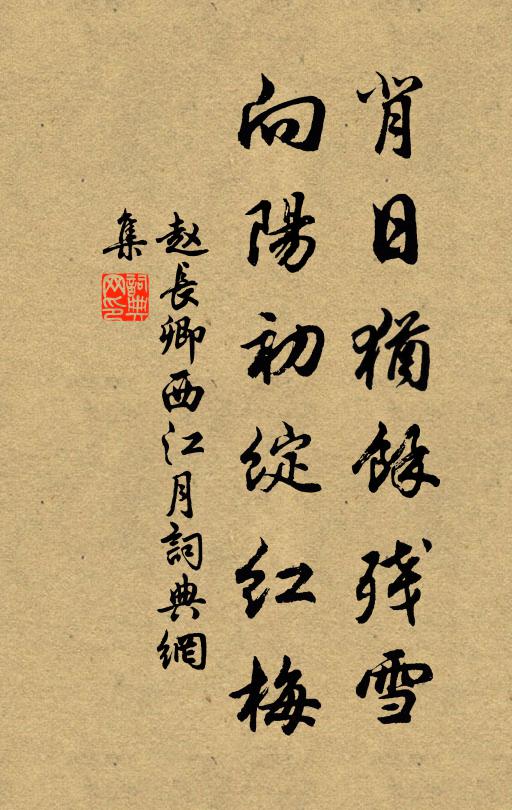 背日猶餘残雪
向陽初綻红梅
赵長卿西江月詞典網
集
詞典
网印